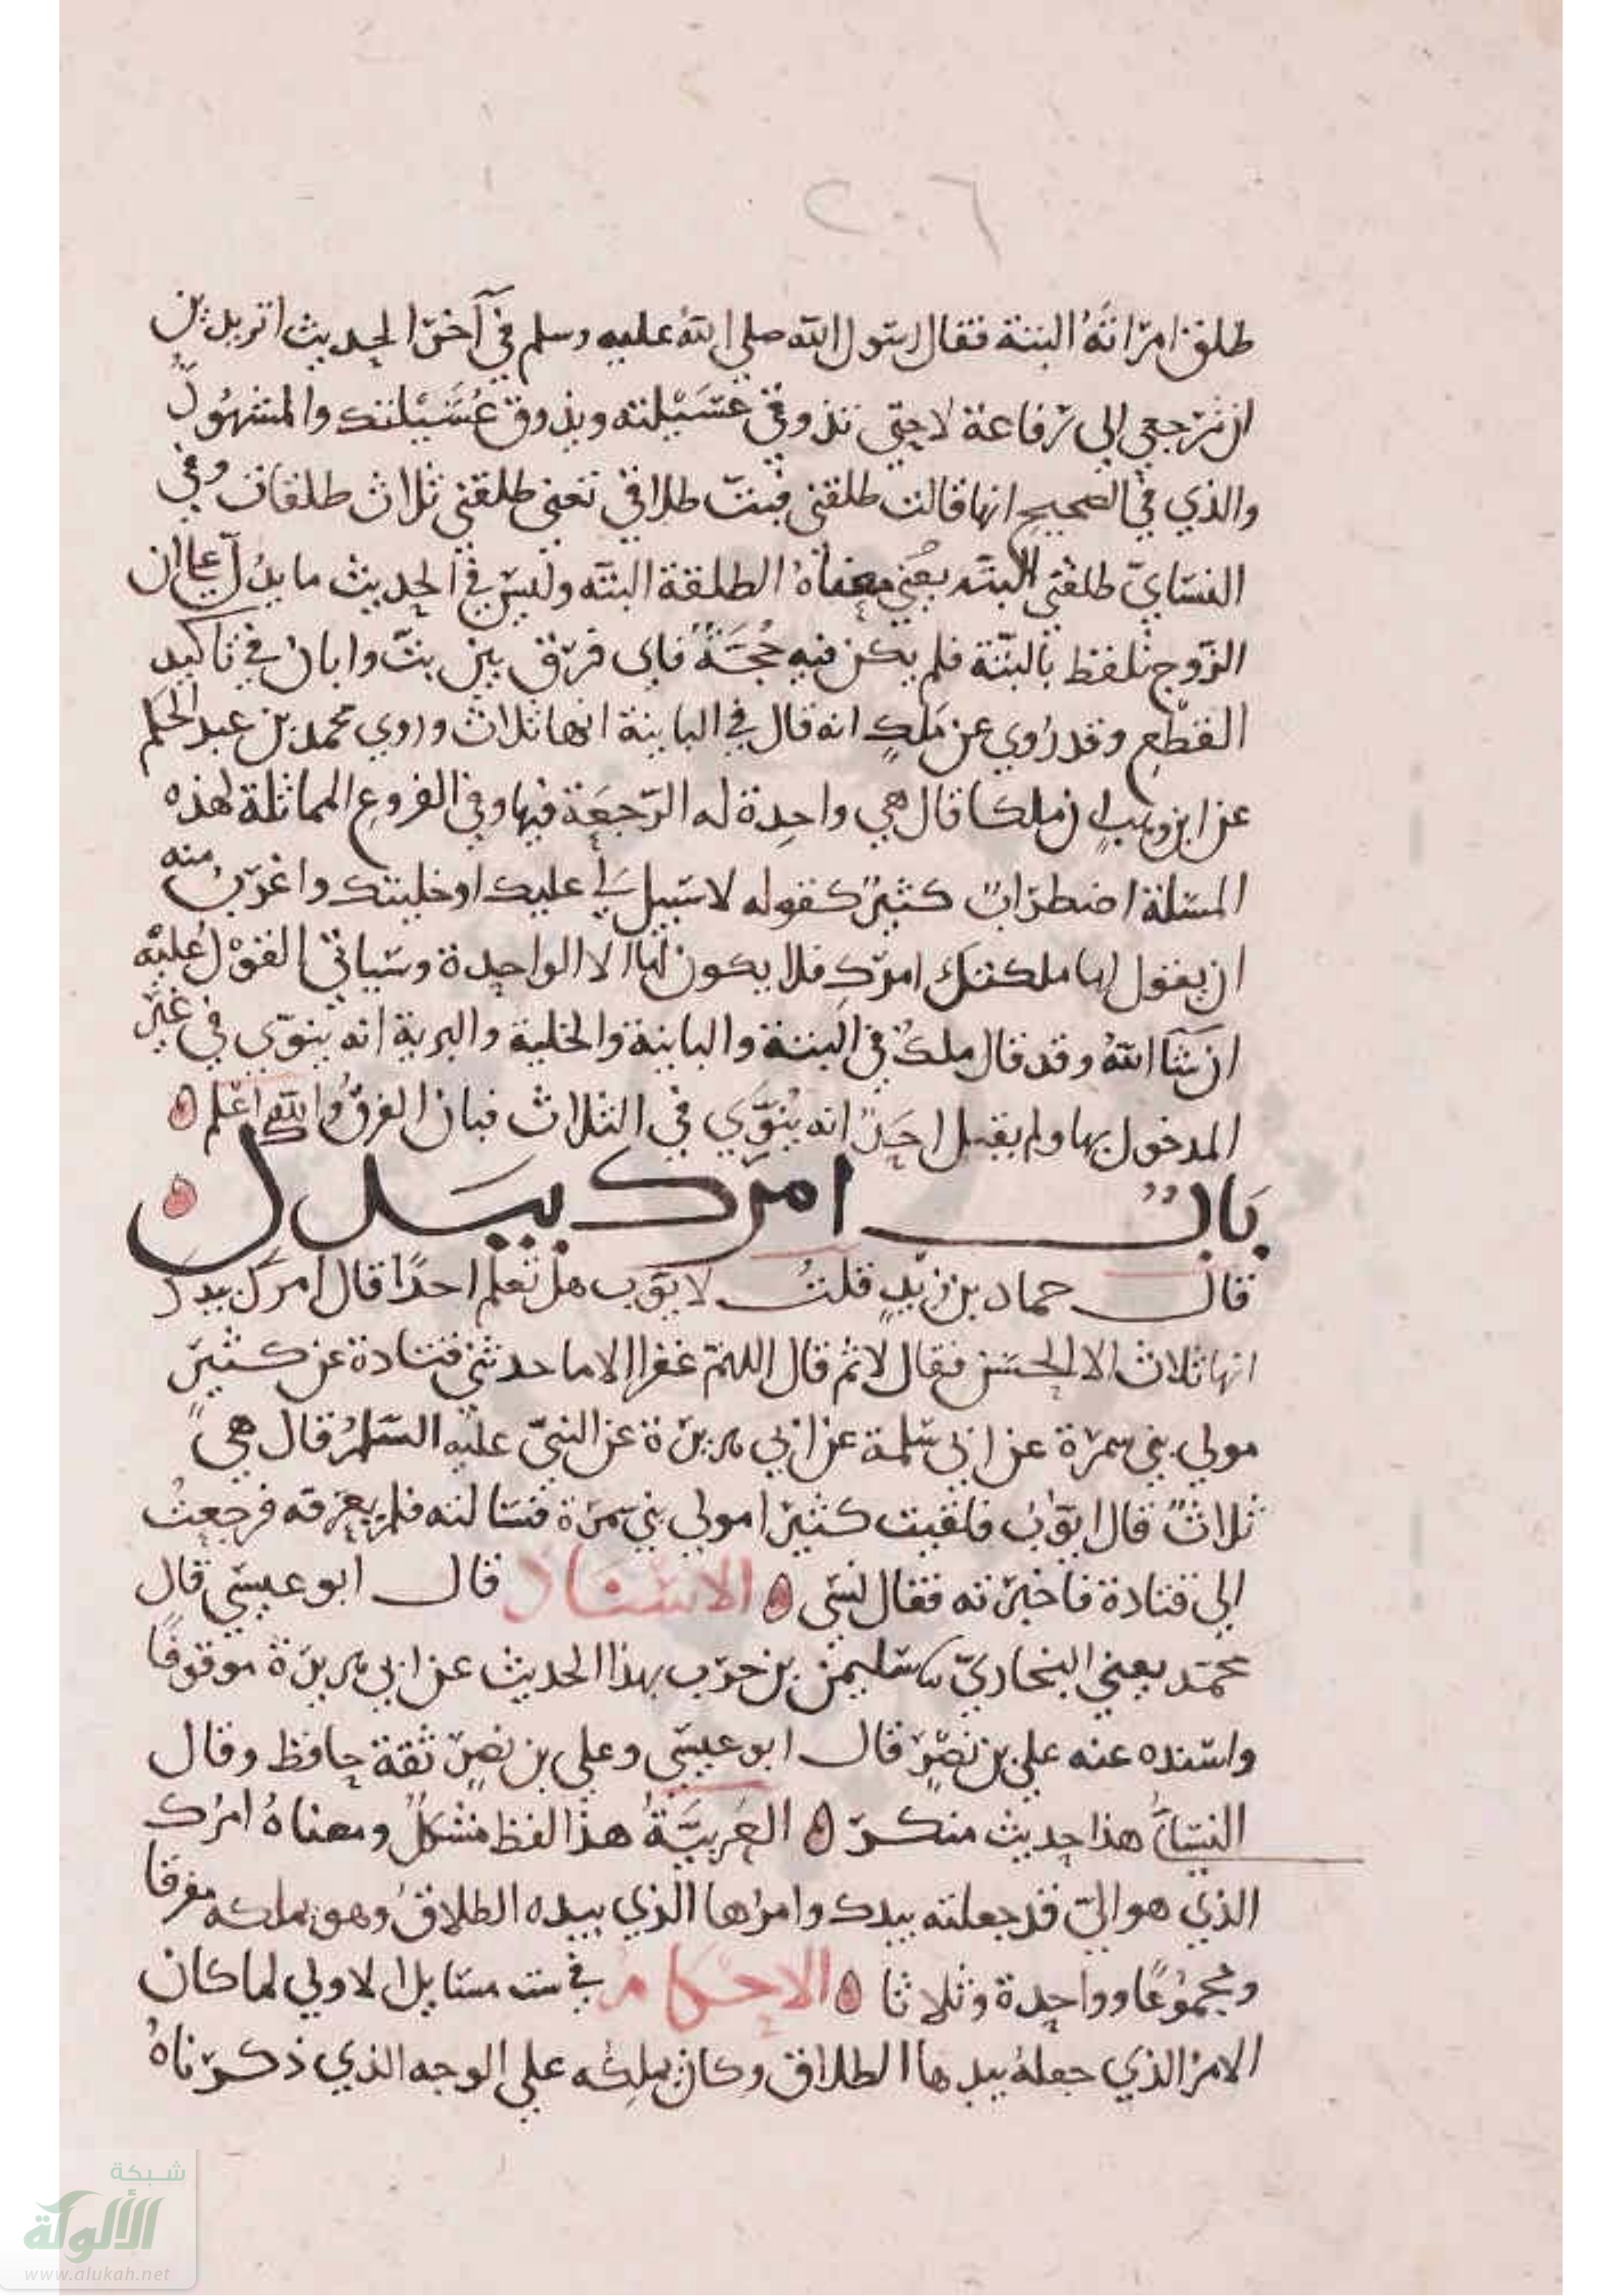 ٢٠٦
طلق امرأته البتة فقال رسول الله صلى الله عليه وسلم في آخر الحديث اتريدين
ان ترجعي الى رفاعة لا حتى تذوقي عسيلته ويذوق عسيلتك والمشهور
والذي في الصحيح انها قالت طلقني فبت طلاقي تعني طلقني ثلاث طلقات وفي
النسايّ طلقني البته يعني معناه الطلقة البته وليس في الحديث ما يدل على ان
الزوج تلفظ بالبتة فلم يكن فيه حجة فاي فرق بين بتّ وابان في تاكيد
القطع وقد روي عن ملك انه قال في الباينة انها ثلاث وروي محمد بن عبد الحكم
عن ابن وهب ان ملكا قال هي واحدة له الرجعة فيها وفي الفروع المماثلة لهذه
المسلة اضطراب كثير كقوله لا سبيل لي عليك او خليتك واغرب منه
ان يقول لها ملكتك امرك فلا يكون لها الا الواحدة وسياتي القول عليه
ان شا الله وقد قال ملك في البتة والباينة والخلية والبرية انه ينوّي في غير
المدخول بها ولم يقبل احد انه ينوّي في الثلاث فبان الفرق والله اعلم
باب امرك بيدك
قال حماد بن زيد قلت لايوب هل تعلم احدا قال امرك بيدك
انها ثلاث الا الحسن فقال لا ثم قال اللهم غفرا الا ما حدثني قتادة عن كثير
مولى بني سمرة عن ابي سلمة عن ابي هريرة عن النبيّ عليه السلم قال هي
ثلاث قال ايوب فلقيت كثيرا مولى بني سمرة فسالته فلم يعرفه فرجعت
الى قتادة فاخبرته فقال نسي الاسناد قال ابو عيسى قال
محمد يعني البخاريّ نا سليمن بن حرب بهذا الحديث عن ابي هريرة موقوفا
واسنده عنه علي بن نصر قال ابو عيسى وعلي بن نصر ثقة حافظ وقال
النسايّ هذا حديث منكر العربيّة هذا لفظ مشكل ومعناه امرك
الذي هو اليّ قد جعلته بيدك وامرها الذي بيده الطلاق وهو يملكه مفرقا
ومجموعا وواحدة وثلاثا الاحكام في ست مسايل الاولى لما كان
الامر الذي جعله بيدها الطلاق وكان يملكه على الوجه الذي ذكرناه
شبكة
الألوكة
www.alukah.net